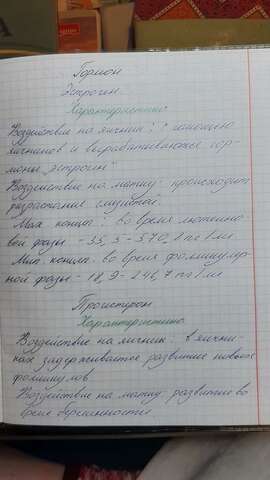 Гормон
Эстроген
Характеристика
Воздействие на яичник: с помощью
яичников и вырабатывающие гор-
моны "эстроген"
Воздействие на матку: происходит
разрастание слизистой.
Мах конц.: во время лютеино-
вой фазы - 33, 3 - 570, 1 пг/мл
Мин. конц. во время фолликуляр-
ной фазы - 18, 9 - 246, 7 пг/мл
Прогистрон
Характеристика
Воздействие на яичник: в яични-
ках задерживается развитие новых
фолликулов
Воздействие на матку: развитие во
время беременности